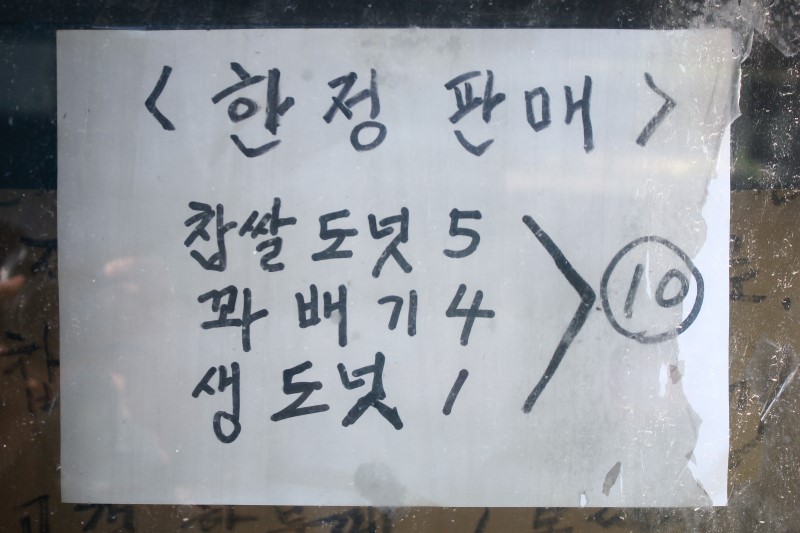 < 한정 판매 >
찹쌀도넛 5
꽈배기 4
생도넛 1
10